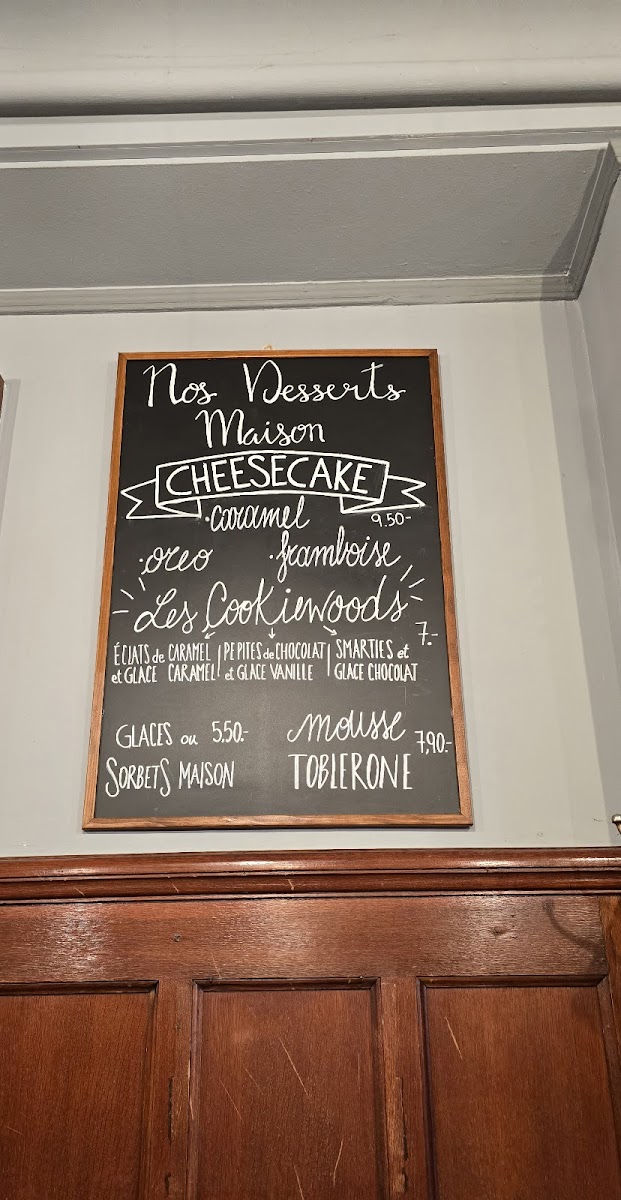 Nos Desserts
Maison
CHEESECAKE
·caramel 9.50-
·oreo ·framboise
Les Cookiewoods
7.-
ÉCLATS de CARAMEL | PEPITES de CHOCOLAT | SMARTIES et
et GLACE CARAMEL | et GLACE VANILLE | GLACE CHOCOLAT
GLACES ou 5.50.- mousse 7,90.-
SORBETS MAISON TOBLERONE